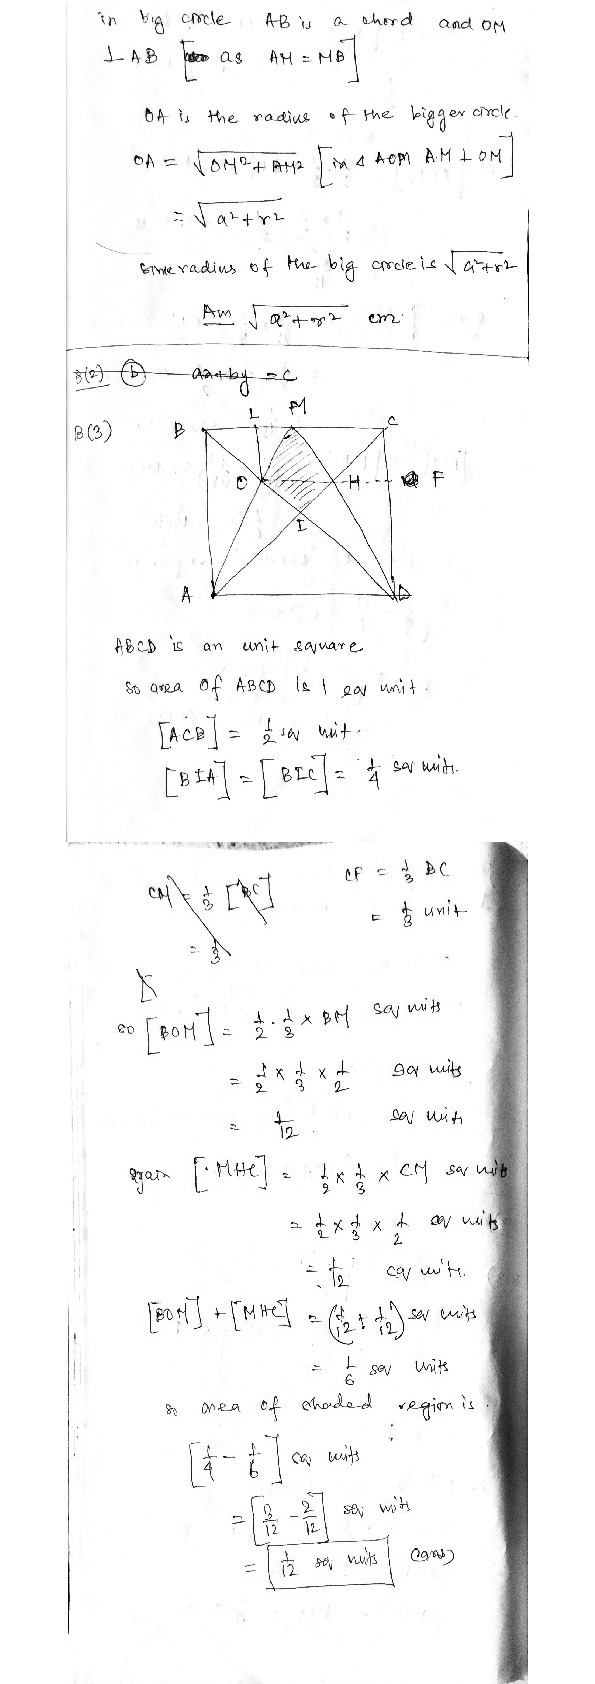 in big circle AB is a chord and OM
⊥ AB [ as AM = MB ]
OA is the radius of the bigger circle.
OA = √OM² + AM² [in Δ AOM AM ⊥ OM]
= √a² + r²
radius of the big circle is √a²+r²
Ans √a² + r² cm
B(2) (b) ax+by = c
B(3)
B L M C
O H F
I
A D
ABCD is an unit square
so area of ABCD is 1 sq unit.
[ACB] = 1/2 sq unit.
[BIA] = [BIC] = 1/4 sq units.
CM = 1/3 [BC]
= 1/3
CF = 1/3 DC
= 1/3 unit
so [BOM] = 1/2 · 1/3 × BM sq units
= 1/2 × 1/3 × 1/2 sq units
= 1/12 sq units
again [MHC] = 1/2 × 1/3 × CM sq units
= 1/2 × 1/3 × 1/2 sq units
= 1/12 sq units.
[BOM] + [MHC] = (1/12 + 1/12) sq units
= 1/6 sq units
so area of shaded region is
[1/4 - 1/6] sq units
= [3/12 - 2/12] sq units
= 1/12 sq units (ans)